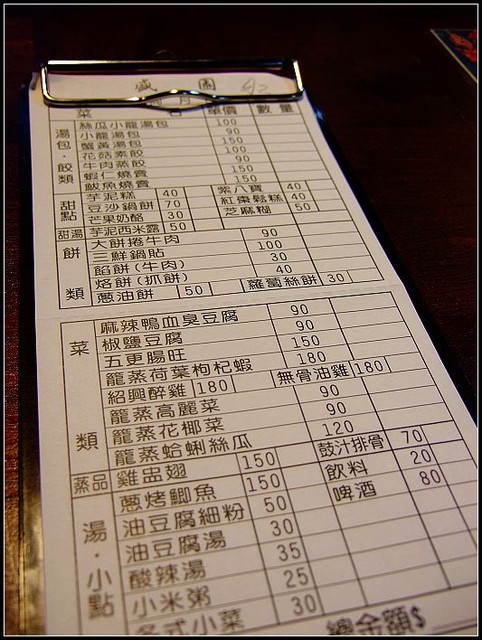 盛園 42
菜 名 單價 數量
湯包·餃類
絲瓜小龍湯包 100
小龍湯包 90
蟹黃湯包 150
花菇素餃 100
牛肉蒸餃 90
蝦仁燒賣 150
魷魚燒賣 150
甜點
芋泥糕 40 紫八寶 40
豆沙鍋餅 70 紅棗鬆糕 40
芒果奶酪 30 芝麻糊 50
甜湯 芋泥西米露 50
餅類
大餅捲牛肉 90
三鮮鍋貼 100
餡餅(牛肉) 30
烙餅(抓餅) 40
蔥油餅 50 蘿蔔絲餅 30
菜類
麻辣鴨血臭豆腐 90
椒鹽豆腐 90
五更腸旺 150
籠蒸荷葉枸杞蝦 180
紹興醉雞 180 無骨油雞 180
籠蒸高麗菜 90
籠蒸花椰菜 90
籠蒸蛤蜊絲瓜 120
蒸品 雞盅翅 150 鼓汁排骨 70
湯·小點
蔥烤鯽魚 150 飲料 20
油豆腐細粉 50 啤酒 80
油豆腐湯 30
酸辣湯 35
小米粥 25
各式小菜 30
總金額$